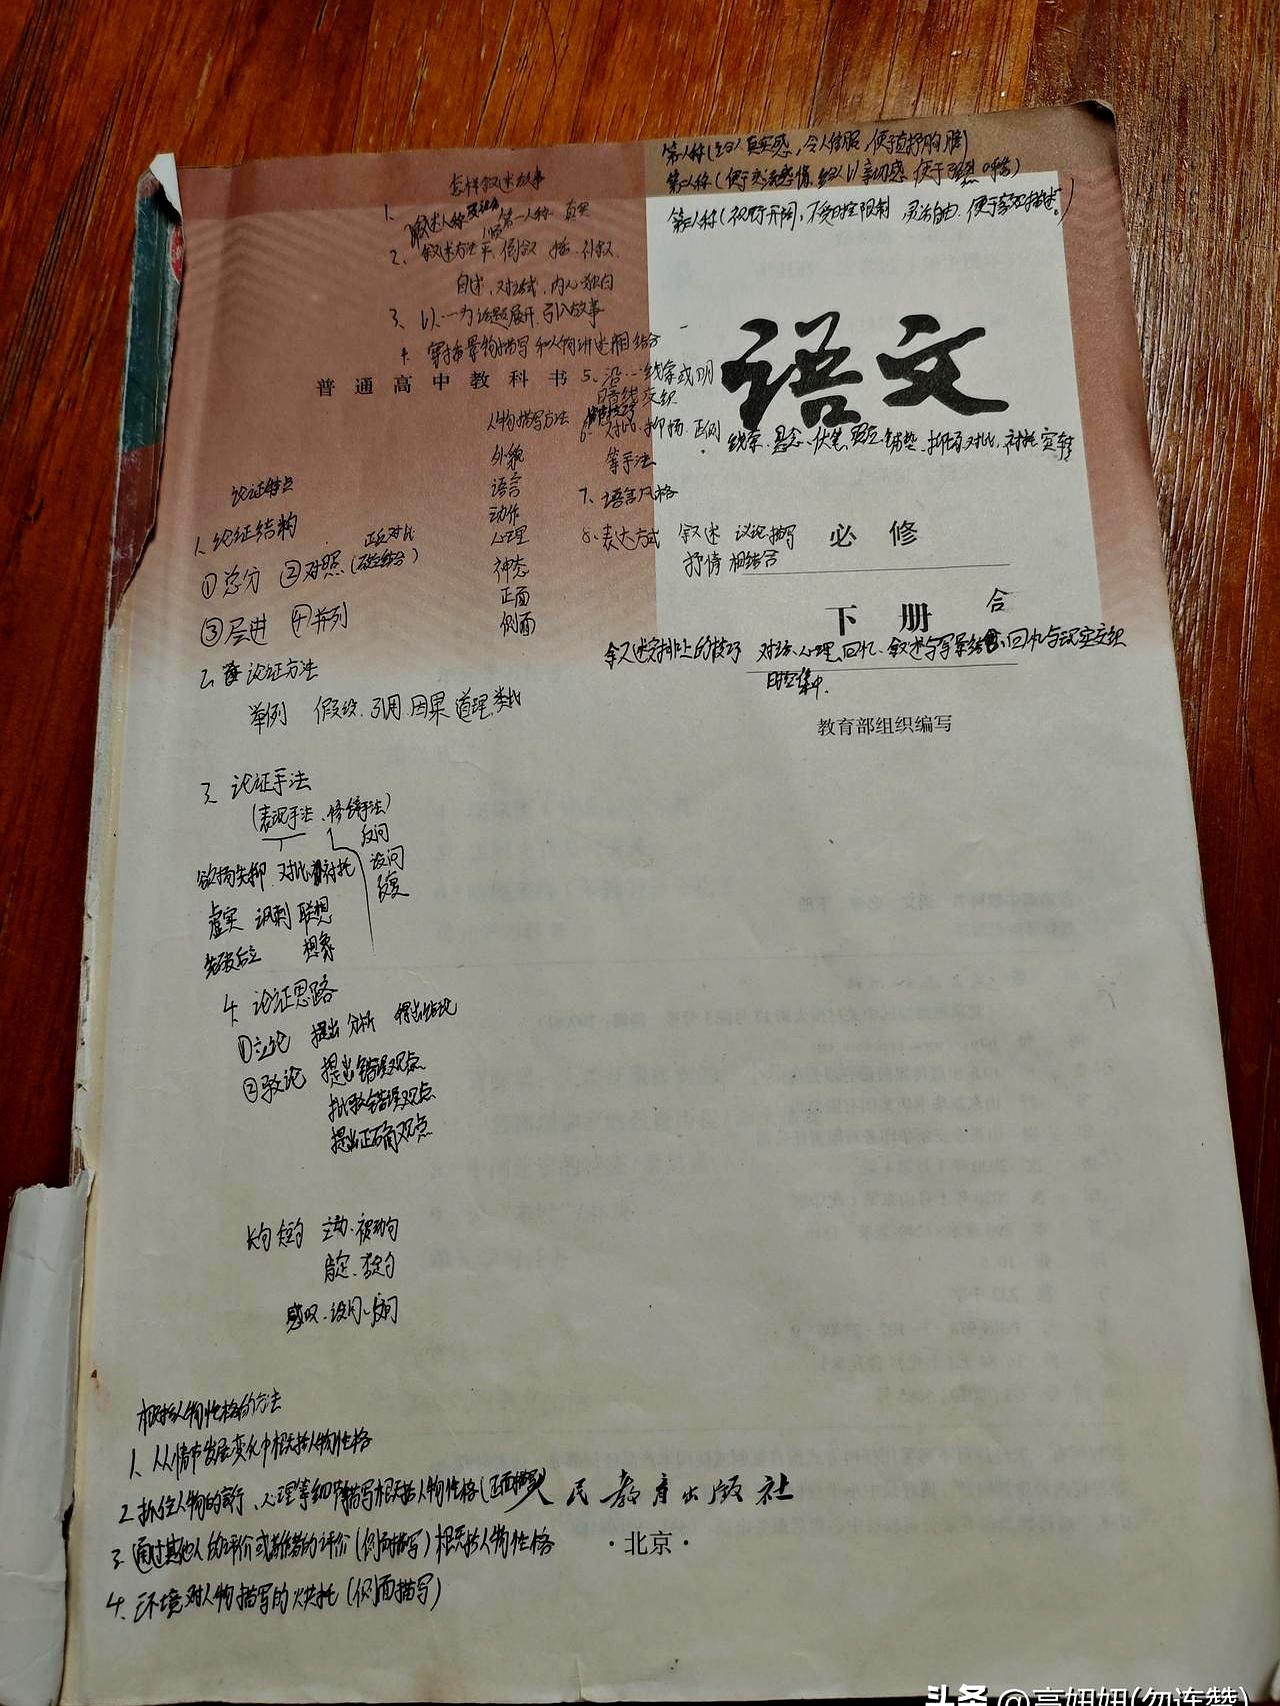 第一人称(给人真实感,令人信服,便于直抒胸臆)
第二人称(便于交流感情,给人以亲切感,便于 呼告)
第三人称(视野开阔,不受时空限制 灵活自由.便于客观描述。)
怎样叙述故事
1.
叙述人称 第一人称 真实
2、叙述方法 倒叙 插、引叙.
自述、对话式、内心独白
3、以一为话题展开.引入故事
4. 穿插景物描写和人物讲述相结合
普通高中教科书
5、沿一线索或明
暗线交织
6、对比、抑扬、正侧
等手法
7、语言风格
8、表达方式 叙述 议论.描写
抒情 相结合
人物描写方法
外貌
语言
动作
心理
神态
正面
侧面
语文
线索、悬念、伏笔、照应、铺垫、抑扬、对比、衬托、突转
必修
下册
合
叙述安排上的技巧 对话、心理、回忆、叙述与写景结合、回忆与现实交织
时空集中.
教育部组织编写
论证特点
1、论证结构
正反对比
①总分 ②对照(破立结合)
③层进 ④并列
2、论证方法
举例 假设、引用、因果、道理、类比
3、论证手法
(表现手法、修辞手法)
反问
设问
反复
欲扬先抑、对比、衬托
虚实 讽刺 联想
先破后立 想象
4、论证思路
①立论 提出 分析 得出结论
②驳论 提出错误观点
批驳错误观点
提出正确观点
长句 短句 主动、被动句
肯定、否定句
感叹、设问、反问
概括人物性格的方法
1、从情节发展变化中概括人物性格
2、抓住人物的言行、心理等细节描写概括人物性格(正面描写)
3、通过其他人的评价或作者的评价(侧面描写)概括人物性格
4、环境对人物描写的烘托(侧面描写)
人民教育出版社
·北京·
头条 @高妞妞(勿连赞)